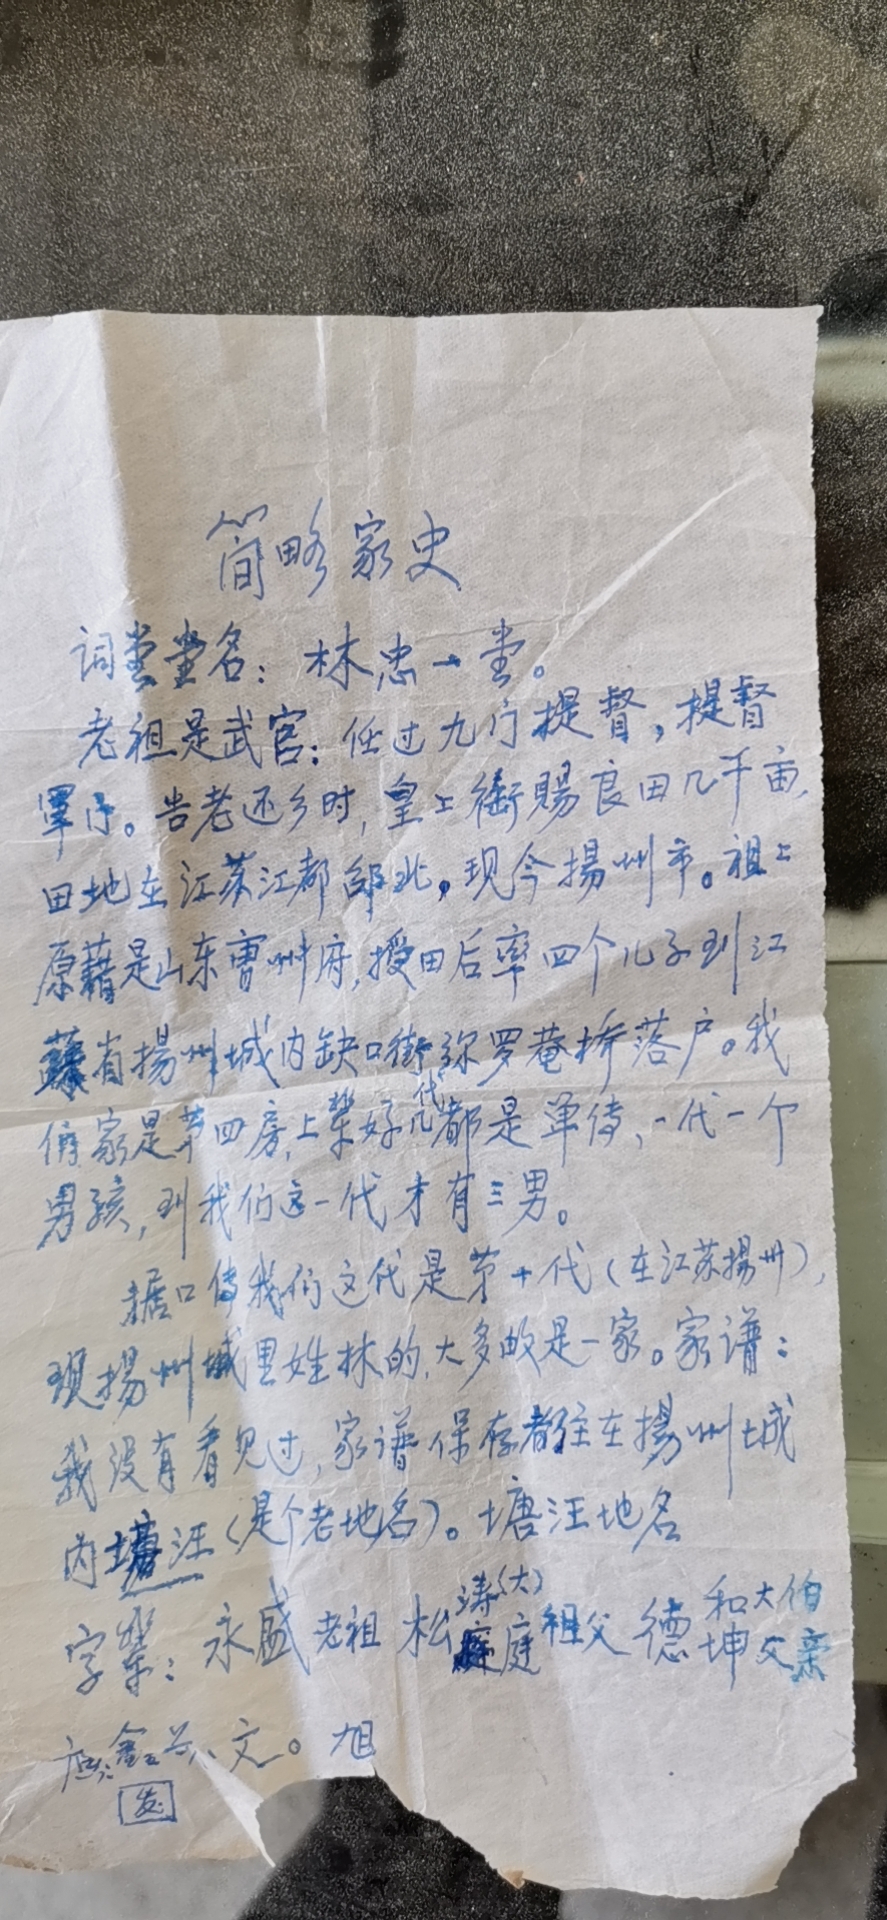 简略家史
词堂堂名：林忠一堂。
老祖是武官：任过九门提督，提督
军门。告老还乡时，皇上衔赐良田几千亩，
田地在江苏江都邵北，现今揚州市。祖上
原藉是山东曹州府，授田后率四个儿子到江
蘇省揚州城内缺口街弥罗菴桥落户。我
俩家是第四房，上辈好几代都是单传，一代一个
男孩，到我们这一代才有三男。
据口传我们这代是第十代（在江苏揚州），
现揚州城里姓林的，大多故是一家。家谱：
我没有看见过，家谱保存者住在揚州城
内塘汪（是个老地名）。塘汪地名
字辈：永盛老祖 松涛（大）庭祖父 德和大伯坤父亲
鑫 文。旭
发